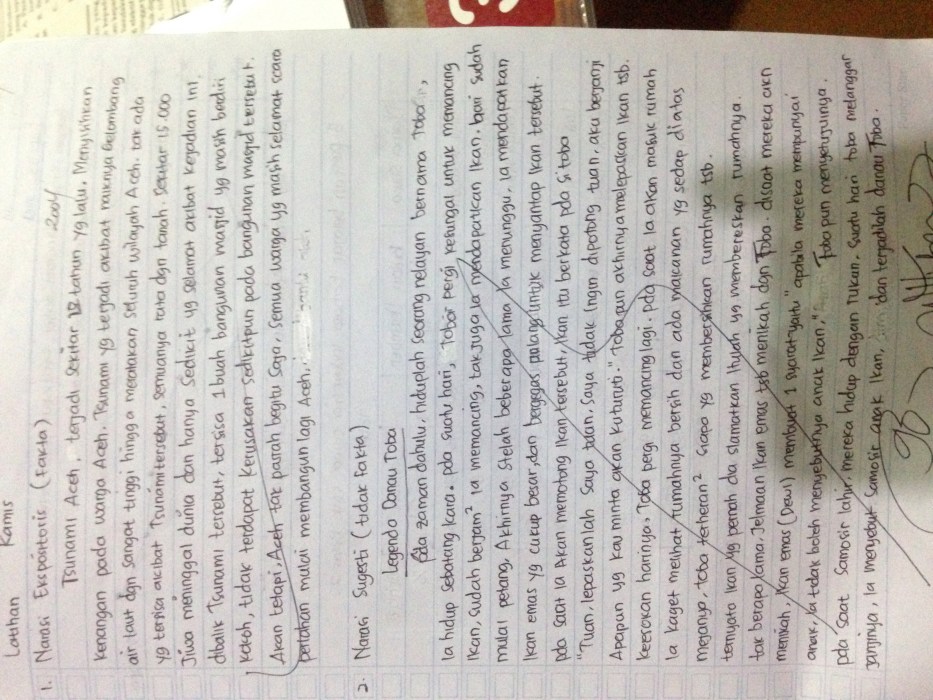 Latihan Kamis
1. Narasi Ekspositoris (Fakta)
2004
Tsunami Aceh, terjadi sekitar 12 tahun yg lalu. Menyisihkan
kenangan pada warga Aceh. Tsunami yg terjadi akibat naiknya Gelombang
air laut dgn sangat tinggi hingga meratakan seluruh wilayah Aceh. tak ada
yg tersisa akibat Tsunami tersebut, semuanya rata dgn tanah. Sekitar 15.000
Jiwa meninggal dunia dan hanya sedikit yg selamat akibat kejadian ini.
dibalik Tsunami tersebut, tersisa 1 buah bangunan masjid yg masih berdiri
kokoh, tidak terdapat kerusakan sedikitpun pada bangunan masjid tersebut.
Akan tetapi, Aceh tak pasrah begitu saja, semua warga yg masih selamat scara
perlahan mulai membangun lagi Aceh.
2. Narasi Sugesti (tidak fakta)
Legenda Danau Toba
Pda zaman dahulu, hiduplah seorang nelayan bernama Toba,
Ia hidup sebatang kara. pda suatu hari, Toba pergi kesungai untuk memancing
Ikan, sudah berjam² ia memancing, tak juga ia mendapatkan Ikan. hari sudah
mulai petang, Akhirnya stelah beberapa lama Ia menunggu, ia mendapatkan
Ikan emas yg cukup besar, dan bergegas pulang untuk menyantap Ikan tersebut.
pda saat Ia Akan memotong Ikan tersebut, Ikan itu berkata pda si toba
"Tuan, lepaskanlah saya tuan, saya tidak Ingin dipotong tuan, aku berjanji
Apapun yg kau minta akan kuturuti." Toba pun akhirnya melepaskan Ikan tsb.
keesokan harinya, Toba pergi memancing lagi. pda saat Ia akan masuk rumah
Ia kaget melihat rumahnya bersih dan ada makanan yg sedap diatas
mejanya, toba terheran² siapa yg membersihkan rumahnya tsb.
ternyata Ikan yg pernah dia slamatkan Itulah yg membereskan rumahnya.
tak berapa lama, Jelmaan Ikan emas tsb menikah dgn Toba. disaat mereka akn
menikah, Ikan emas (Dewi) membuat 1 syarat yaitu "apabila mereka mempunyai
anak, Ia tidak boleh menyebutnya anak Ikan," Toba pun menyetujuinya.
pda saat Samosir lahir, mereka hidup dengan rukun. Suatu hari toba melanggar
janjinya, Ia menyebut Samosir anak Ikan, dan terjadilah danau Toba.